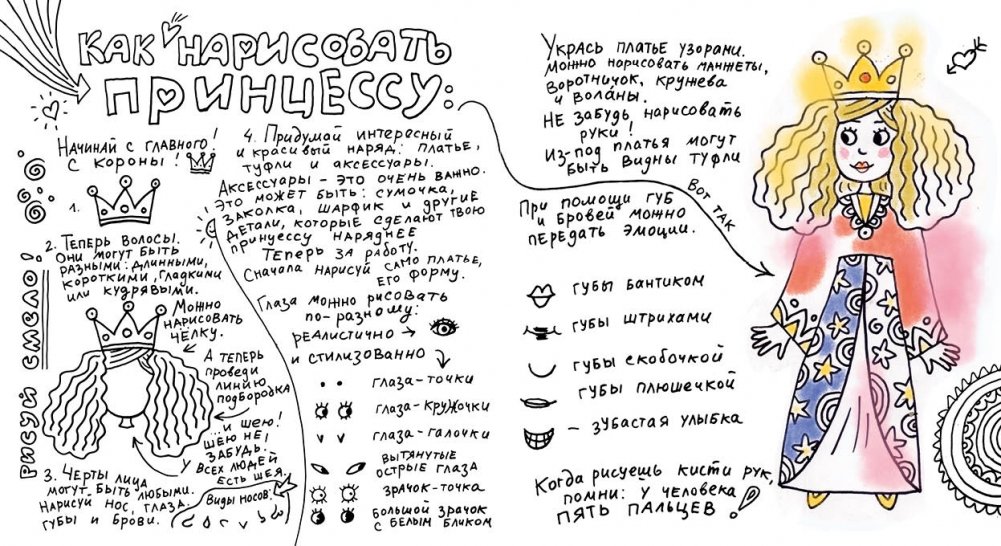 КАК НАРИСОВАТЬ
ПРИНЦЕССУ:
НАЧИНАЙ С ГЛАВНОГО!
С КОРОНЫ!
1.
2. ТЕПЕРЬ ВОЛОСЫ.
ОНИ МОГУТ БЫТЬ
РАЗНЫМИ: ДЛИННЫМИ,
КОРОТКИМИ, ГЛАДКИМИ
ИЛИ КУДРЯВЫМИ.
МОЖНО
НАРИСОВАТЬ
ЧЁЛКУ.
А ТЕПЕРЬ
ПРОВЕДИ
ЛИНИЮ
ПОДБОРОДКА
...И ШЕЮ!
ШЕЮ НЕ
ЗАБУДЬ!
У ВСЕХ ЛЮДЕЙ
ЕСТЬ ШЕЯ.
3. ЧЕРТЫ ЛИЦА
МОГУТ БЫТЬ ЛЮБЫМИ.
НАРИСУЙ НОС, ГЛАЗА,
ГУБЫ И БРОВИ.
ВИДЫ НОСОВ:
РИСУЙ СМЕЛО!
4. ПРИДУМАЙ ИНТЕРЕСНЫЙ
И КРАСИВЫЙ НАРЯД: ПЛАТЬЕ,
ТУФЛИ И АКСЕССУАРЫ.
АКСЕССУАРЫ – ЭТО ОЧЕНЬ ВАЖНО.
ЭТО МОЖЕТ БЫТЬ: СУМОЧКА,
ЗАКОЛКА, ШАРФИК И ДРУГИЕ
ДЕТАЛИ, КОТОРЫЕ СДЕЛАЮТ ТВОЮ
ПРИНЦЕССУ НАРЯДНЕЕ
ТЕПЕРЬ ЗА РАБОТУ.
СНАЧАЛА НАРИСУЙ САМО ПЛАТЬЕ,
ЕГО ФОРМУ.
ГЛАЗА МОЖНО РИСОВАТЬ
ПО-РАЗНОМУ:
РЕАЛИСТИЧНО
И СТИЛИЗОВАННО
ГЛАЗА-ТОЧКИ
ГЛАЗА-КРУЖОЧКИ
ГЛАЗА-ГАЛОЧКИ
ВЫТЯНУТЫЕ
ОСТРЫЕ ГЛАЗА
ЗРАЧОК-ТОЧКА
БОЛЬШОЙ ЗРАЧОК
С БЕЛЫМ БЛИКОМ
УКРАСЬ ПЛАТЬЕ УЗОРАМИ.
МОЖНО НАРИСОВАТЬ МАНЖЕТЫ,
ВОРОТНИЧОК, КРУЖЕВА
И ВОЛАНЫ.
НЕ ЗАБУДЬ НАРИСОВАТЬ
РУКИ!
ИЗ-ПОД ПЛАТЬЯ МОГУТ
БЫТЬ ВИДНЫ ТУФЛИ
ВОТ ТАК
ПРИ ПОМОЩИ ГУБ
И БРОВЕЙ МОЖНО
ПЕРЕДАТЬ ЭМОЦИИ.
ГУБЫ БАНТИКОМ
ГУБЫ ШТРИХАМИ
ГУБЫ СКОБОЧКОЙ
ГУБЫ ПЛЮШЕЧКОЙ
– ЗУБАСТАЯ УЛЫБКА
КОГДА РИСУЕШЬ КИСТИ РУК,
ПОМНИ: У ЧЕЛОВЕКА
ПЯТЬ ПАЛЬЦЕВ!